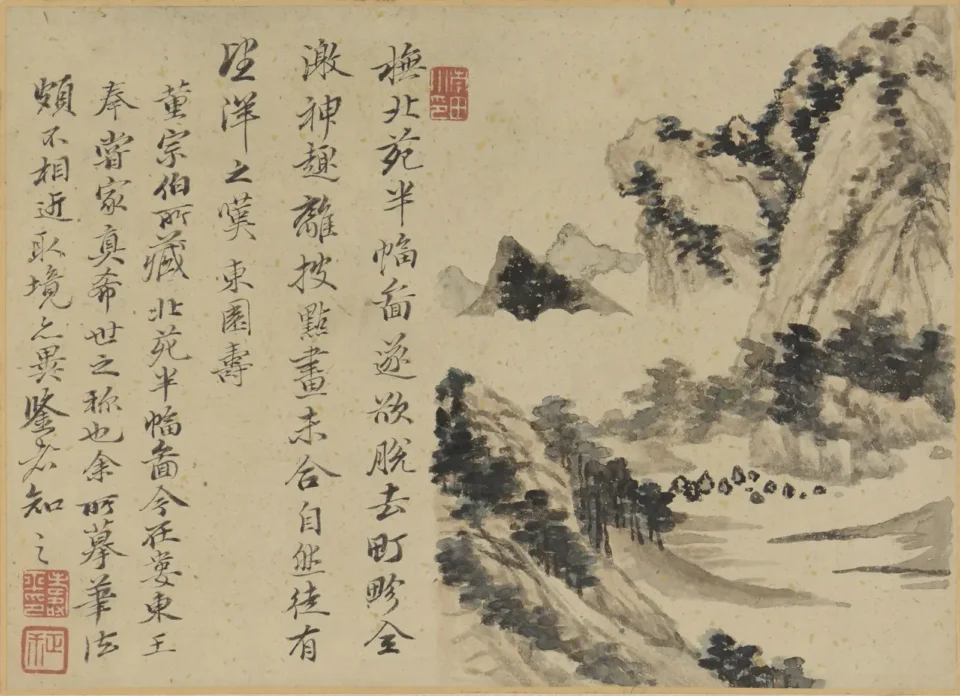 橅北苑半幅啚遂欲脫去町畛全
激神趣離披點畫未合自然徒有
望洋之嘆東園壽
董宗伯所藏北苑半幅啚今在婁東王
奉嘗家真希世之称也余所摹筆法
頗不相近取境亦異鑒者知之
正叔